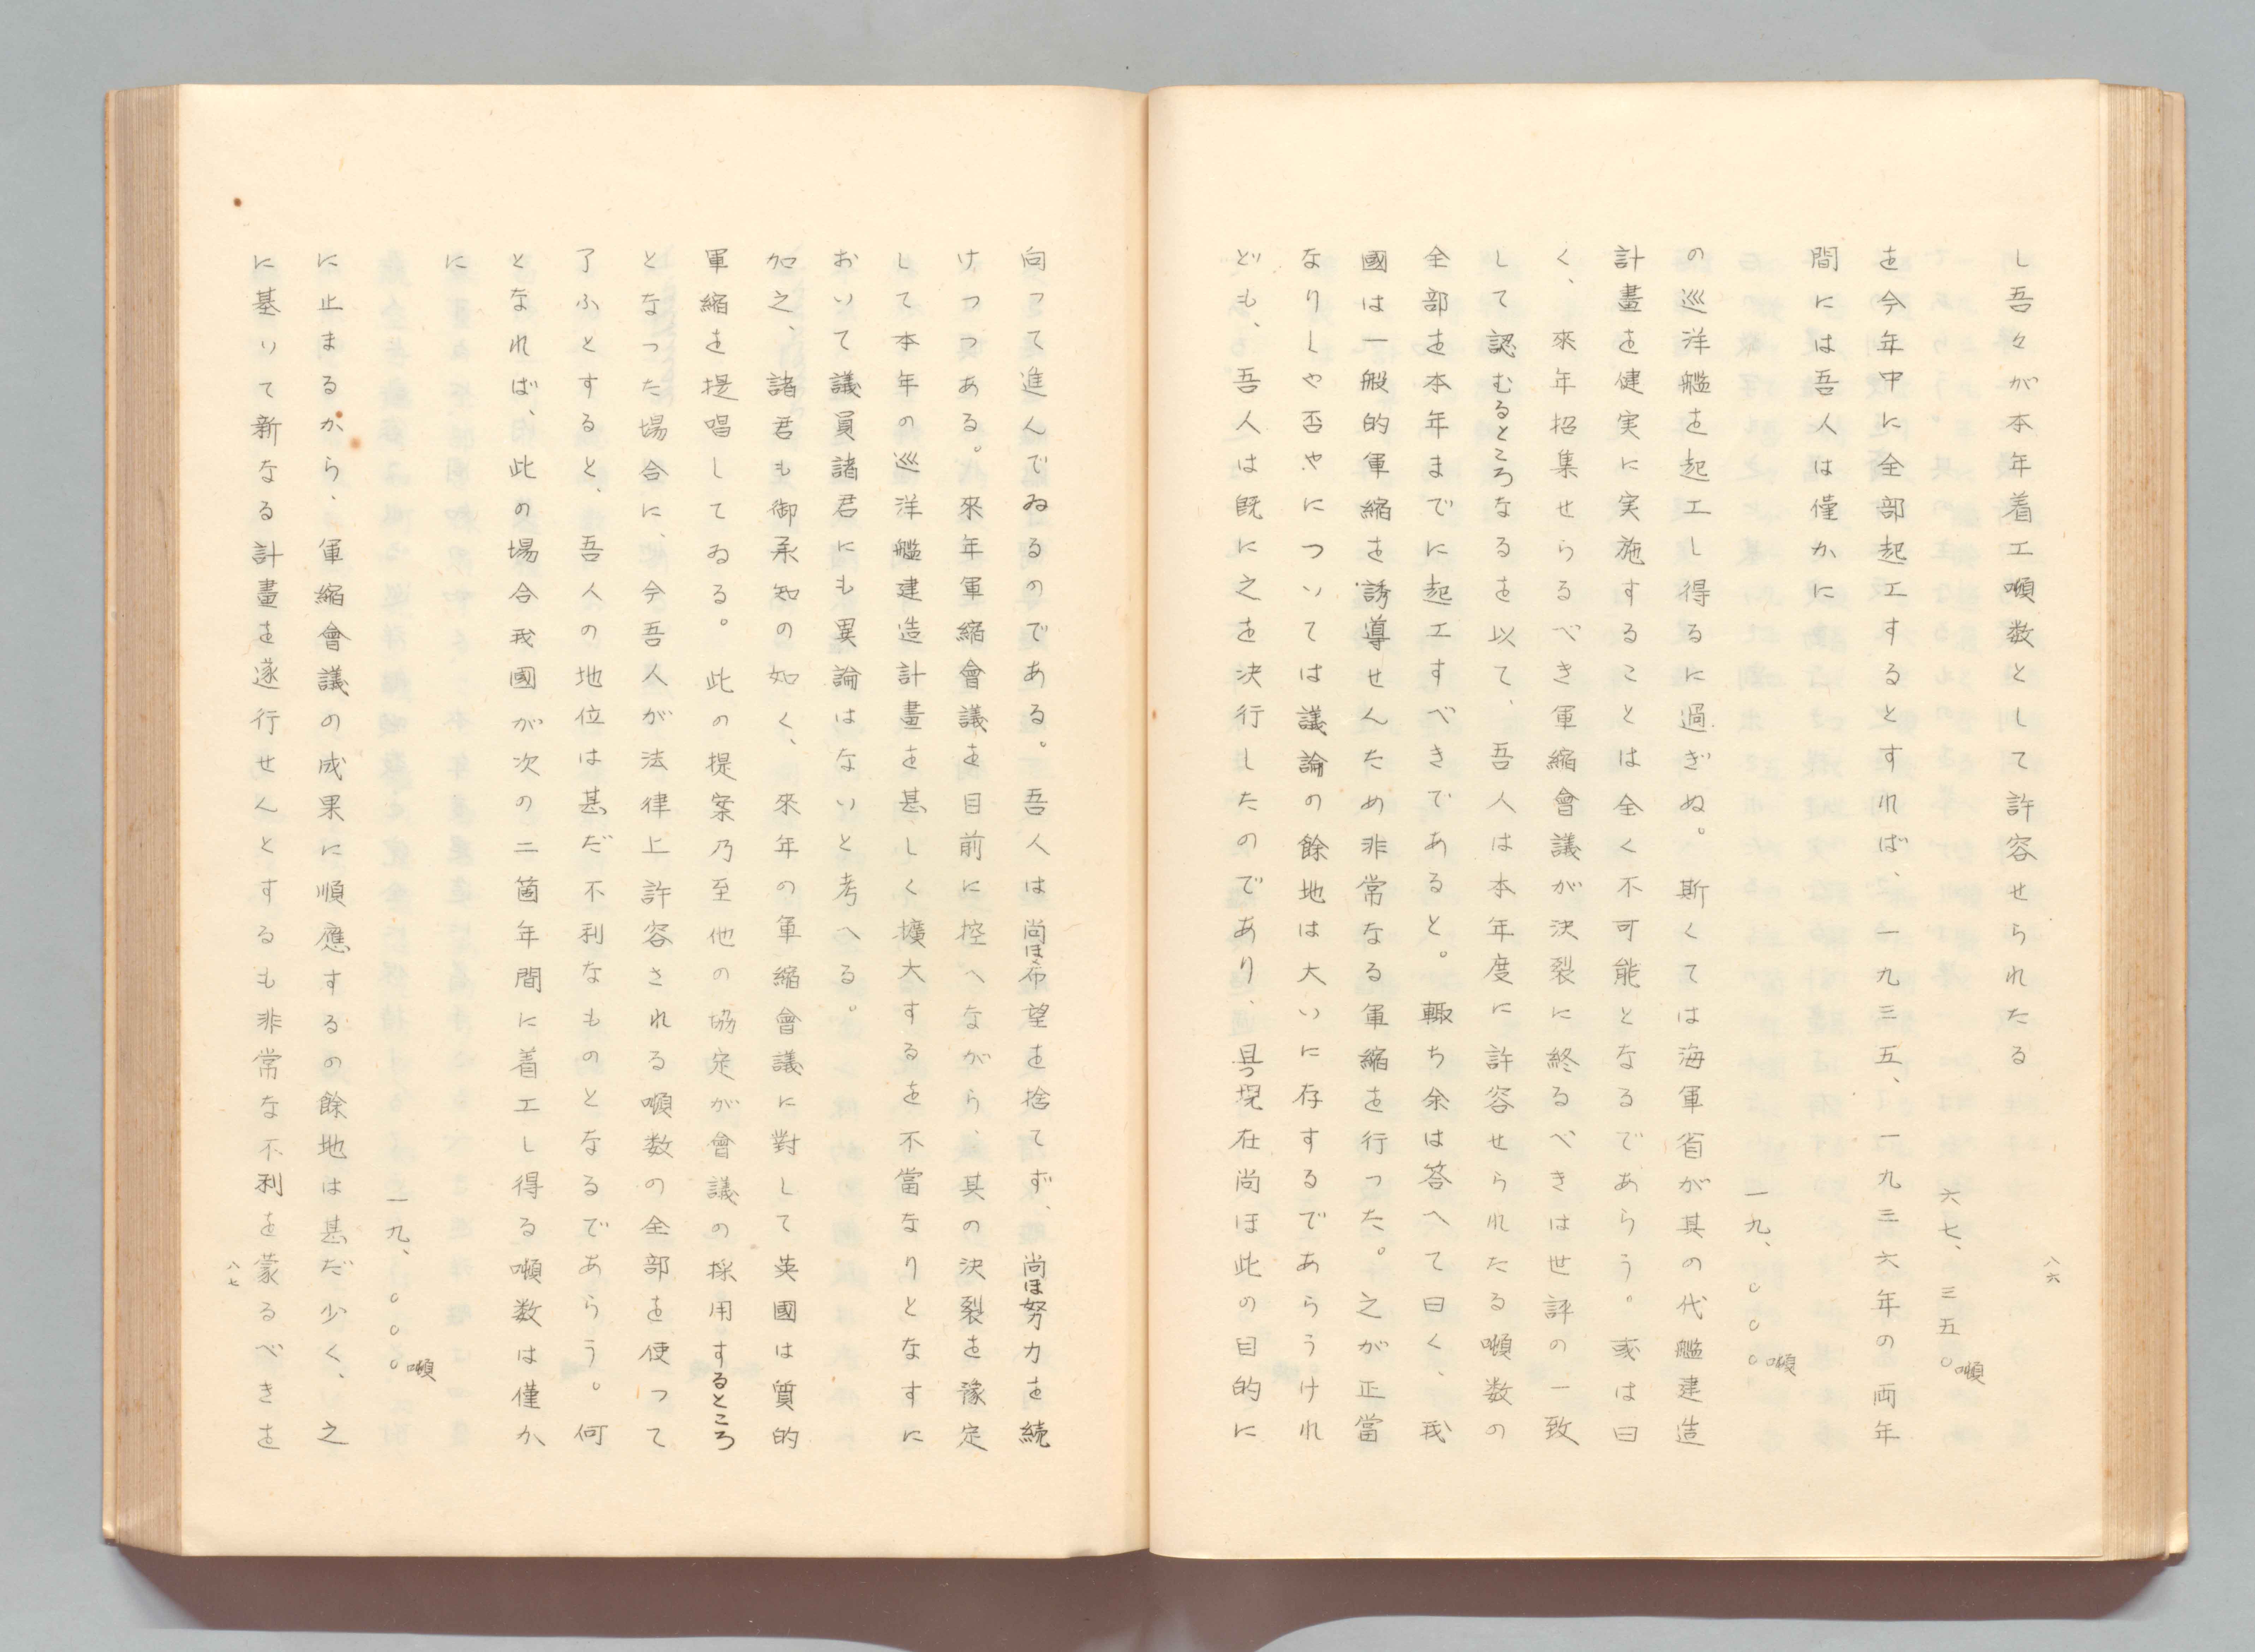 八六
し吾々が本年着工噸数として許容せられたる
六七、三五〇噸
を今年中に全部起工するとすれば、一九三五、一九三六年の両年
間には吾人は僅かに
一九、〇〇〇噸
の巡洋艦を起工し得るに過ぎぬ。斯くては海軍省が其の代艦建造
計畫を健実に実施することは全く不可能となるであらう。或は曰
く、來年招集せらるべき軍縮會議が決裂に終るべきは世評の一致
して認むるところなるを以て、吾人は本年度に許容せられたる噸数の
全部を本年までに起工すべきであると。輙ち余は答へて曰く、我
國は一般的軍縮を誘導せんため非常なる軍縮を行った。之が正當
なりしや否やについては議論の餘地は大いに存するであらうけれ
ども、吾人は既に之を決行したのであり、且つ現在尚ほ此の目的に
向って進んでゐるのである。吾人は尚ほ希望を捨てず、尚ほ努力を続
けつつある。來年軍縮會議を目前に控へながら、其の決裂を豫定
して本年の巡洋艦建造計畫を甚しく擴大するを不當なりとなすに
おいて議員諸君にも異論はないと考へる。
加之、諸君も御承知の如く、來年の軍縮會議に對して英國は質的
軍縮を提唱してゐる。此の提案乃至他の協定が會議の採用するところ
となった場合に、今吾人が法律上許容される噸数の全部を使って
了ふとすると、吾人の地位は甚だ不利なものとなるであらう。何
となれば、此の場合我國が次の二箇年間に着工し得る噸数は僅か
に
一九、〇〇〇噸
に止まるから、軍縮會議の成果に順應するの餘地は甚だ少く、之
に基いて新なる計畫を遂行せんとするも非常な不利を蒙るべきを
八七